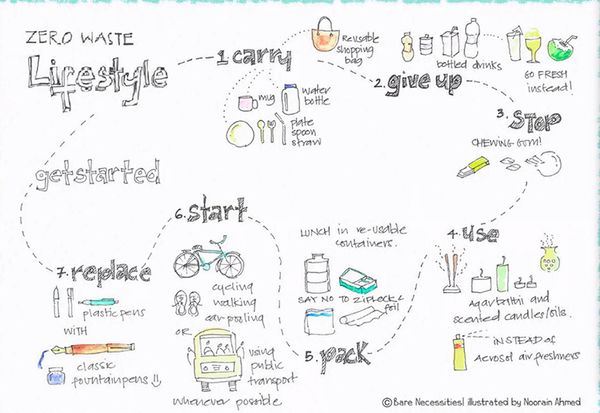 ZERO WASTE
Lifestyle
get started
1. carry
Reusable
shopping
bag
mug
water
bottle
plate
spoon
straw
2. give up
bottled drinks
GO FRESH
instead!
3. STOP
CHEWING GUM!
4. use
Agarbathi and
scented candles/oils.
INSTEAD OF
Aerosol air freshners
5. pack
LUNCH in re-usable
containers.
SAY NO TO ZIPLOCK &
foil
6. start
cycling
walking
car-pooling
OR
using
public
transport
whenever possible
7. replace
plastic pens
WITH
classic
fountain pens
©Bare Necessities| illustrated by Noorain Ahmed